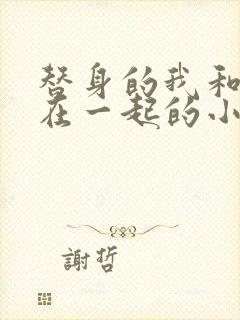 替身的我和
在一起的小
謝哲